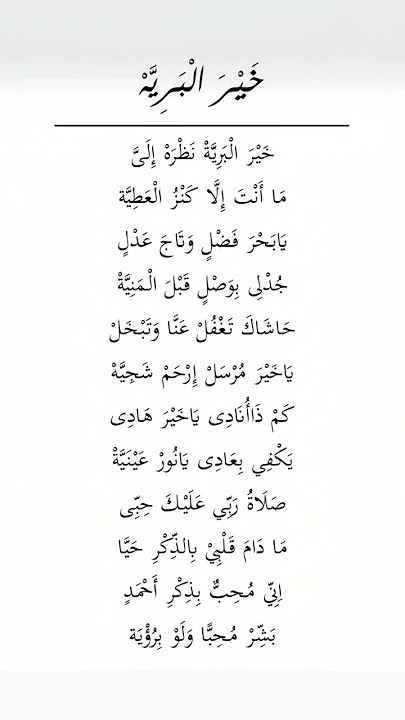 خَيْرَ الْبَرِيَّهْ
خَيْرَ الْبَرِيَّةْ نَظْرَهْ إِلَىَّ
مَا أَنْتَ إِلَّا كَنْزُ الْعَطِيَّة
يَابَحْرَ فَضْلٍ وَتَاجَ عَدْلٍ
جُدْلِى بِوَصْلٍ قَبْلَ الْمَنِيَّةْ
حَاشَاكَ تَغْفُلْ عَنَّا وَتَبْخَلْ
يَاخَيْرَ مُرْسَلْ إِرْحَمْ شَجِيَّهْ
كَمْ ذَاأُنَادِى يَاخَيْرَ هَادِى
يَكْفِي بِعَادِى يَانُورْ عَيْنَيَّةْ
صَلَاةُ رَبِّي عَلَيْكَ حِبِّى
مَا دَامَ قَلْبِيْ بِالذِّكْرِ حَيَّا
اِنِّي مُحِبٌّ بِذِكْرِ أَحْمَدٍ
بَشِّرْ مُحِبًّا وَلَوْ بِرُؤْيَة